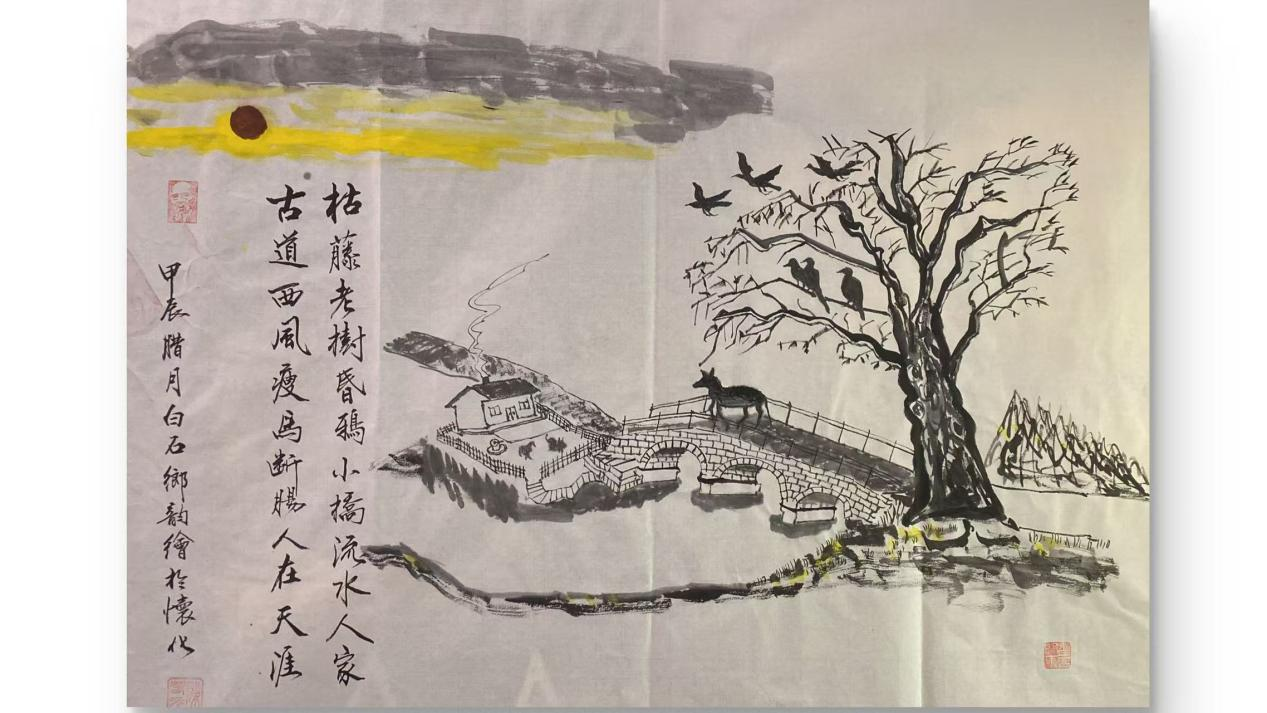 枯藤老樹昏鴉小橋流水人家
古道西風瘦馬斷腸人在天涯
甲辰腊月白石鄉韵繪於懷化